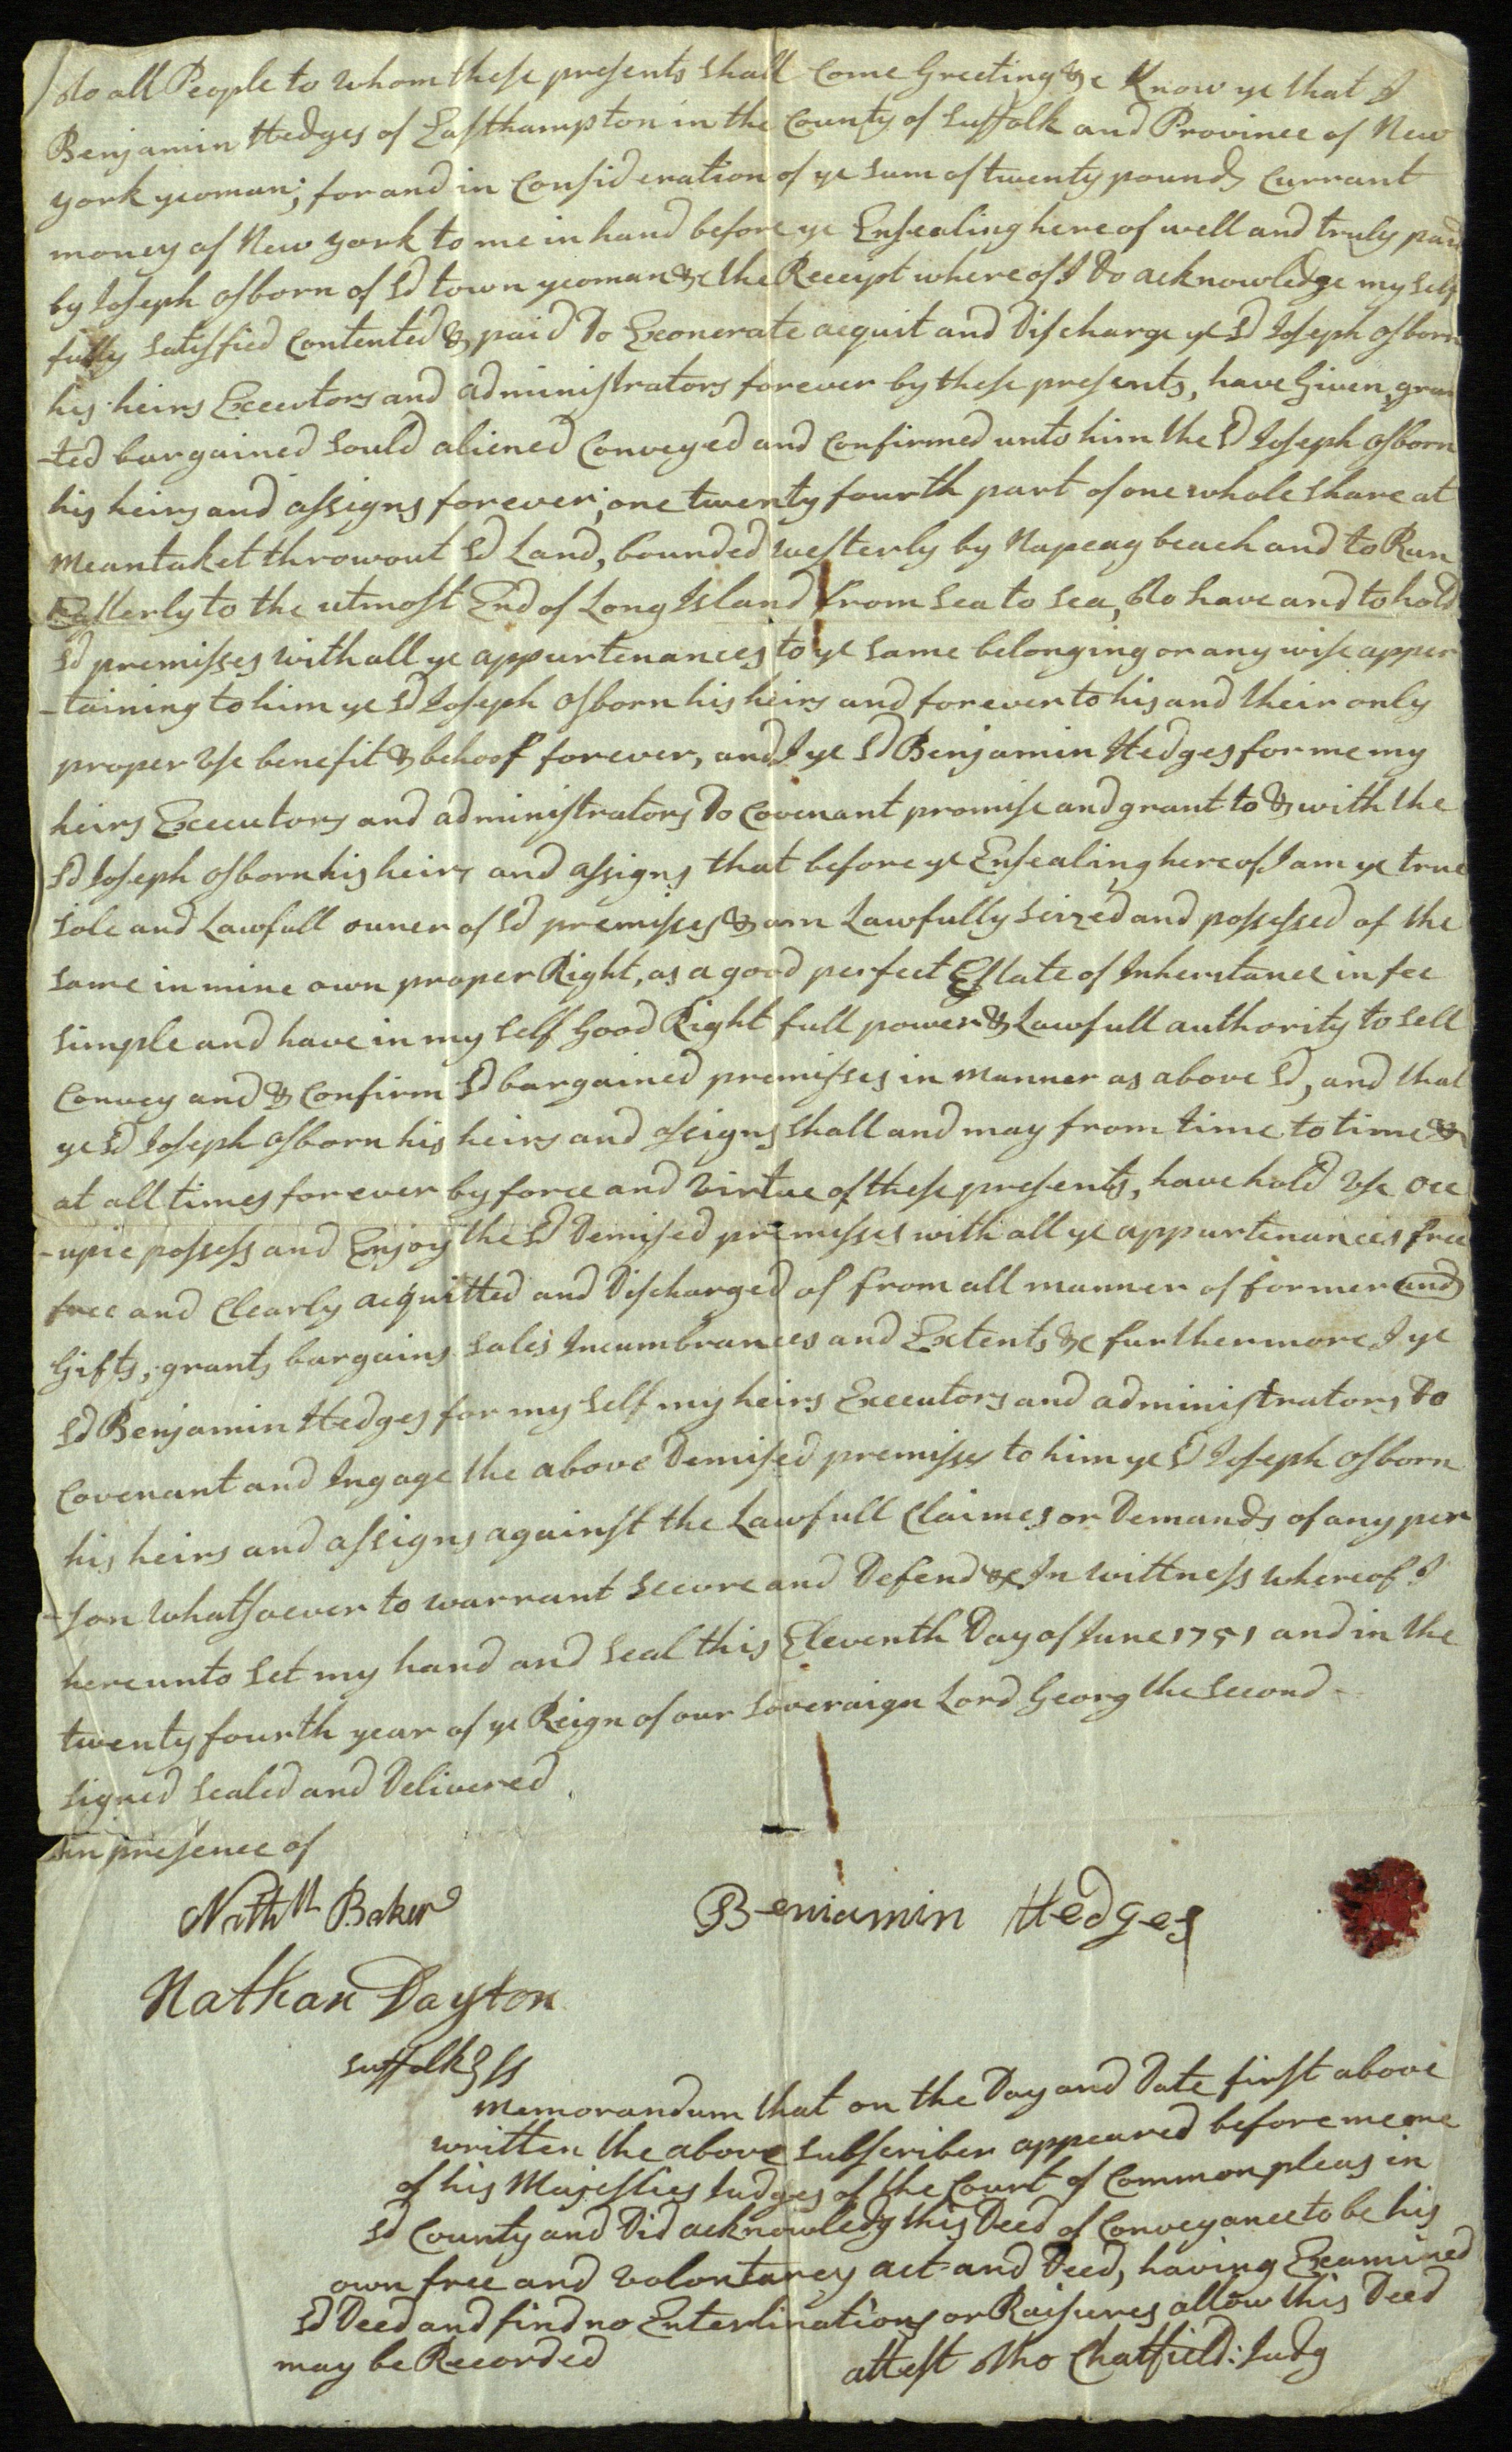 To all People to whom these presents shall Come Greeting &c Know ye that I
Benjamin Hedges of Easthampton in the County of Suffolk and Province of New
york yeoman; for and in Consideration of ye sum of twenty pounds Currant
money of New york to me in hand before ye Ensealing here of well and truly paid
by Joseph osborn of sd town yeoman &c the Receipt where of I Do acknowledge my self
fully satisfied Contented & paid Do Exonerate acquit and Discharge ye sd Joseph osborn
his heirs Executors and administrators forever by these presents, have Given, gran
-ted bargained sould aliened Conveyed and Confirmed unto him the sd Joseph osborn
his heirs and assigns forever; one twenty fourth part of one whole share at
meantaket throwout sd Land, bounded westerly by Napeag beach and to Run
Easterly to the utmost End of Long Island from sea to sea, To have and to hold
sd premisses with all ye appurtenances to ye same belonging or any wise apper
-taining to him ye sd Joseph osborn his heirs and forever to his and their only
proper Use benefit & behoof forever, and I ye sd Benjamin Hedges for me my
heirs Executors and administrators Do Covenant promise and grant to & with the
sd Joseph osborn his heirs and assigns that before ye Ensealing here of I am ye true
sole and Lawfull owner of sd premisses & am Lawfully seized and possessed of the
same in mine own proper Right, as a good perfect Estate of Inherstance in fee
simple and have in my self Good Right full power & Lawfull authority to sell
Convey and & Confirm sd bargained premisses in manner as above sd, and that
ye sd Joseph osborn his heirs and assigns shall and may from time to time &
at all times forever by force and virtue of these presents, have hold Use occ
-upie possess and Enjoy the sd Demised premesses with all ye appurtenances free
free and Clearly acquitted and Discharged of from all manner of former and
Gifts, grants bargains sales Incumbrances and Extents &c furthermore I ye
sd Benjamin Hedges for my self my heirs Executors and administrators Do
Covenant and Ingage the above Demised premisses to him ye sd Joseph osborn
his heirs and assigns against the Lawfull Claimes or Demands of any per
-son whatsoever to warrant secure and Defend &c In wittness whereof I
hereunto set my hand and seal this Eleventh Day of June 1751 and in the
twenty fourth year of ye Reign of our soveraign Lord Georg the second
signed sealed and Delivered
in presence of
Nathll Baker
Beniamin Hedges
Nathan Dayton
suffolk } ss
memorandum that on the Day and Date first above
written the above subscriber appeared before me one
of his Majesties Judges of the Court of Common pleas in
sd County and Did acknowledg this Deed of Conveyance to be his
own free and volontarey act and Deed, having Examined
sd Deed and find no Enterlinations or Raisures allow this Deed
may be Recorded
attest Tho Chatfield: Judg